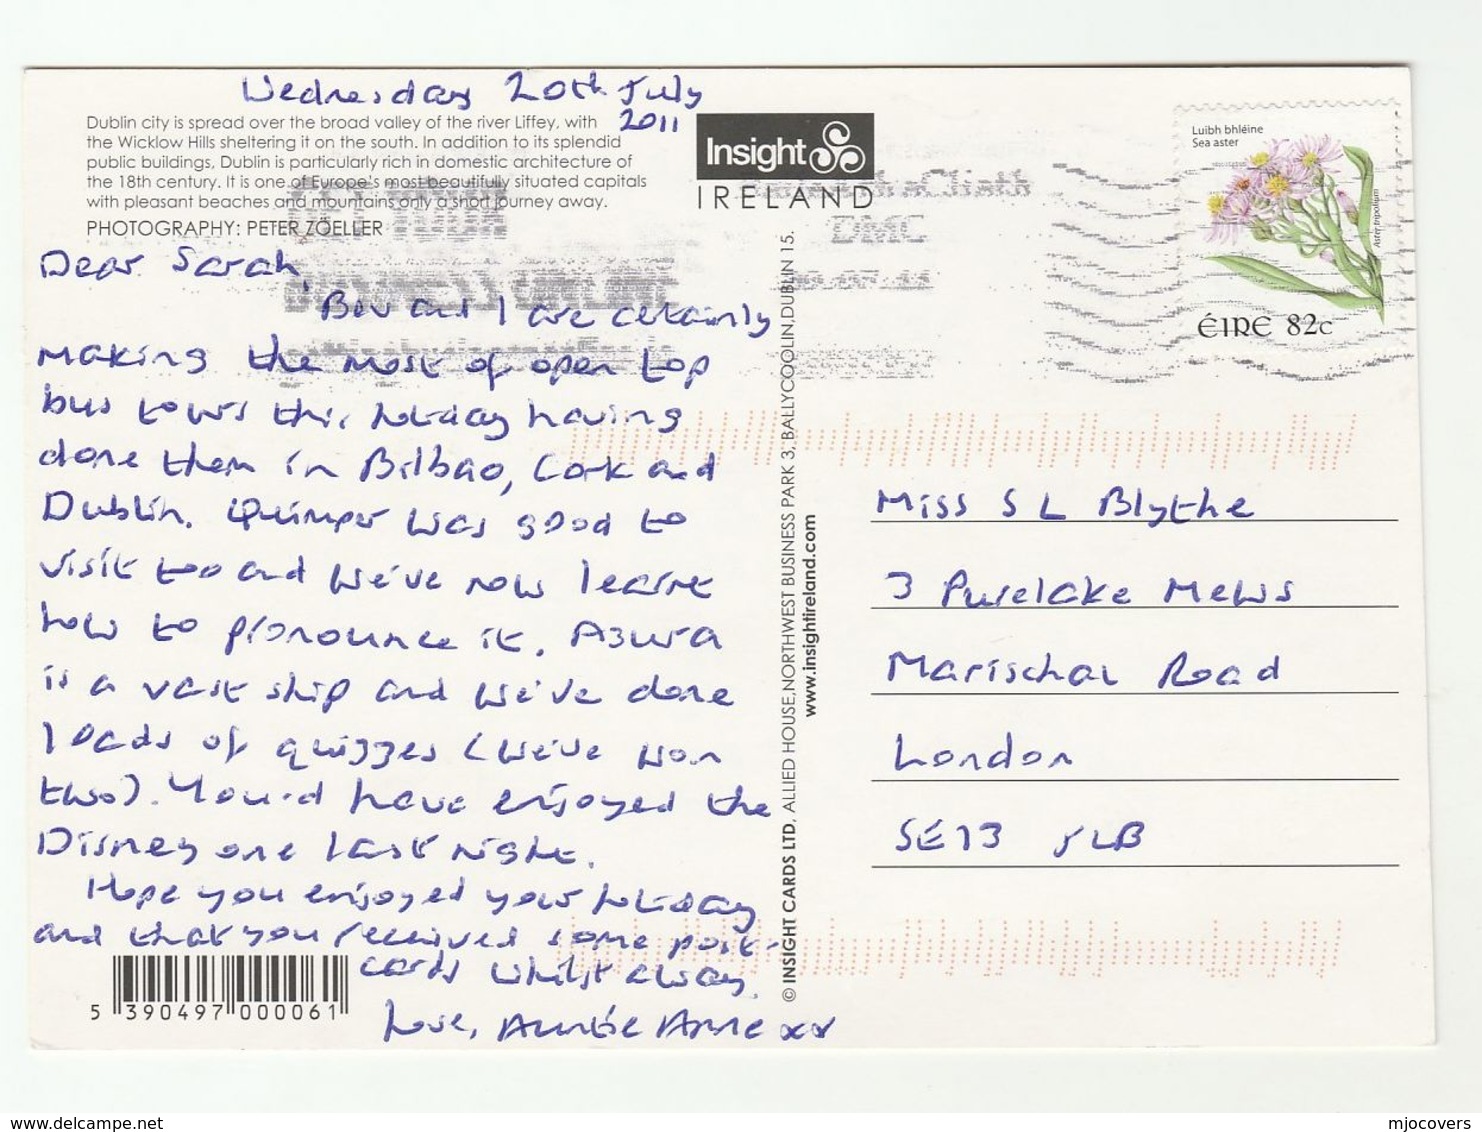 Wednesday 20th July
2011
Dublin city is spread over the broad valley of the river Liffey, with
the Wicklow Hills sheltering it on the south. In addition to its splendid
public buildings, Dublin is particularly rich in domestic architecture of
the 18th century. It is one of Europe's most beautifully situated capitals
with pleasant beaches and mountains only a short journey away.
PHOTOGRAPHY: PETER ZÖELLER
Insight
IRELAND
Luibh bhléine
Sea aster
Aster tripolium
ÉIRE 82c
Dear Sarah,
Bev and I are certainly
making the most of open top
bus tours this holiday having
done them in Bilbao, Cork and
Dublin. Quimper was good to
visit too and we've now learnt
how to pronounce it. Azura
is a vast ship and we've done
loads of quizzes (we've won
two). You'd have enjoyed the
Disney one last night.
Hope you enjoyed your holiday
and that you received some post-
cards whilst away.
Love, Auntie Anne xx
5 390497 000061
© INSIGHT CARDS LTD, ALLIED HOUSE, NORTHWEST BUSINESS PARK 3, BALLYCOOLIN, DUBLIN 15.
www.insightireland.com
Miss S L Blythe
3 Purelake Mews
Marischal Road
London
SE13 5LB
delcampe.net
mjocovers